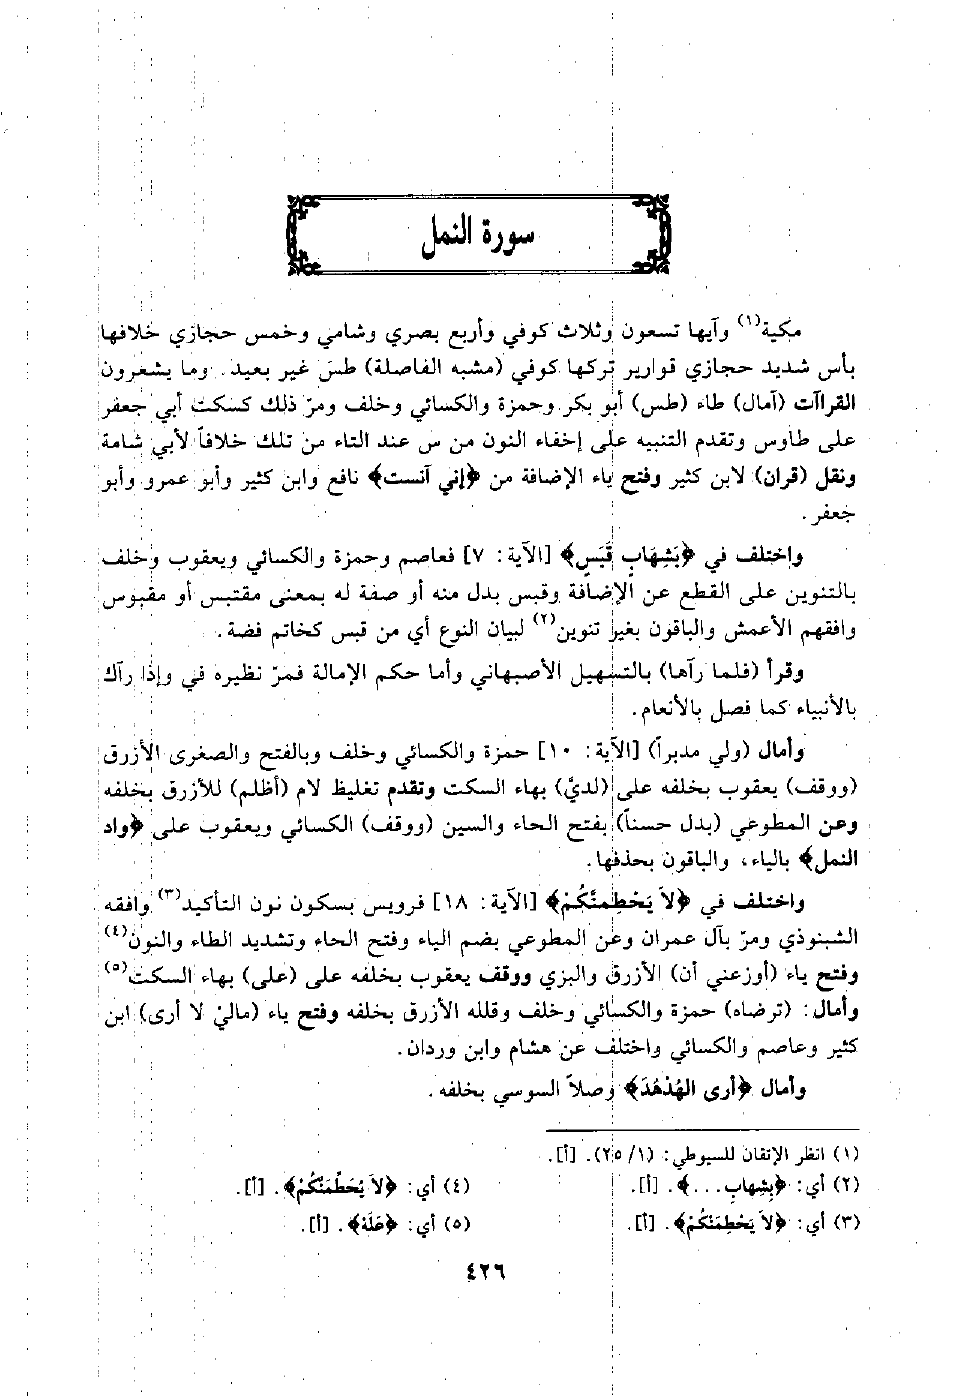 سورة النمل
مكية(١) وآيها تسعون وثلاث كوفي وأربع بصري وشامي وخمس حجازي خلافها
بأس شديد حجازي قوارير تركها كوفي (مشبه الفاصلة) طسَ غير بعيد. وما يشعرون
القراآت (آمال) طاء (طس) أبو بكر وحمزة والكسائي وخلف ومرّ ذلك كسكت أبي جعفر
على طاوس وتقدم التنبيه على إخفاء النون من س عند التاء من تلك خلافاً لأبي شامة
ونقل (قران) لابن كثير وفتح ياء الإضافة من ﴿إني آنست﴾ نافع وابن كثير وأبو عمرو وأبو
جعفر.
واختلف في ﴿بَشِهَابٍ قَبَسٍ﴾ [الآية: ٧] فعاصم وحمزة والكسائي ويعقوب وخلف
بالتنوين على القطع عن الإضافة وقبس بدل منه أو صفة له بمعنى مقتبس أو مقبوس
وافقهم الأعمش والباقون بغير تنوين(٢) لبيان النوع أي من قبس كخاتم فضة.
وقرأ (فلما رآها) بالتسهيل الأصبهاني وأما حكم الإمالة فمرّ نظيره في وإذا رآك
بالأنبياء كما فصل بالأنعام.
وأمال (ولي مدبراً) [الآية: ١٠] حمزة والكسائي وخلف وبالفتح والصغرى الأزرق
(ووقف) يعقوب بخلفه على (لديّ) بهاء السكت وتقدم تغليظ لام (أظلم) للأزرق بخلفه
وعن المطوعي (بدل حسناً) بفتح الحاء والسين (ووقف) الكسائي ويعقوب على ﴿واد
النمل﴾ بالياء، والباقون بحذفها.
واختلف في ﴿لاَ يَحْطِمنَّكُمْ﴾ [الآية: ١٨] فرويس بسكون نون التأكيد(٣) وافقه
الشنبوذي ومرّ بآل عمران وعن المطوعي بضم الياء وفتح الحاء وتشديد الطاء والنون(٤)
وفتح ياء (أوزعني أن) الأزرق والبزي ووقف يعقوب بخلفه على (على) بهاء السكت(٥)
وأمال: (ترضاه) حمزة والكسائي وخلف وقلله الأزرق بخلفه وفتح ياء (ماليْ لا أرى) ابن
كثير وعاصم والكسائي واختلف عن هشام وابن وردان.
وأمال ﴿أرى الهُدْهُدَ﴾ وصلاً السوسي بخلفه.
(١) انظر الإتقان للسيوطي: (١/ ٢٥). [أ].
(٢) أي: ﴿بِشِهابِ...﴾. [أ].
(٣) أي: ﴿لاَ يَحْطِمَنْكُمْ﴾. [أ].
(٤) أي: ﴿لاَ يُحَطِّمَنَّكُمْ﴾. [أ].
(٥) أي: ﴿عَلَهْ﴾. [أ].
٤٢٦